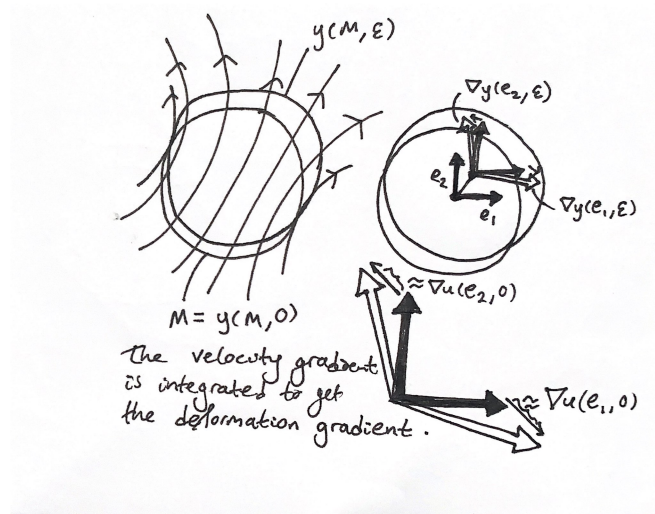 y(M,ε)
∇y(e₂,ε)
e₂
e₁
∇y(e₁,ε)
≈∇u(e₂,0)
M = y(M,0)
≈∇u(e₁,0)
The velocity gradient
is integrated to get
the deformation gradient.